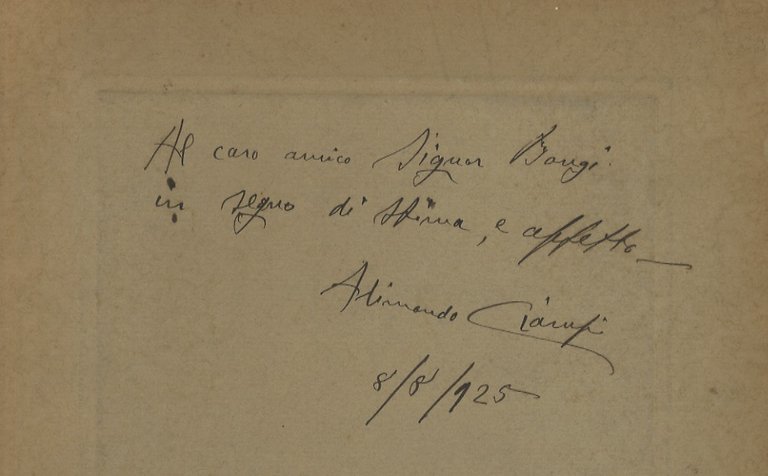 Al caro amico Signor Bongi
in segno di stima, e affetto
Alimondo Ciampi
8/8/925